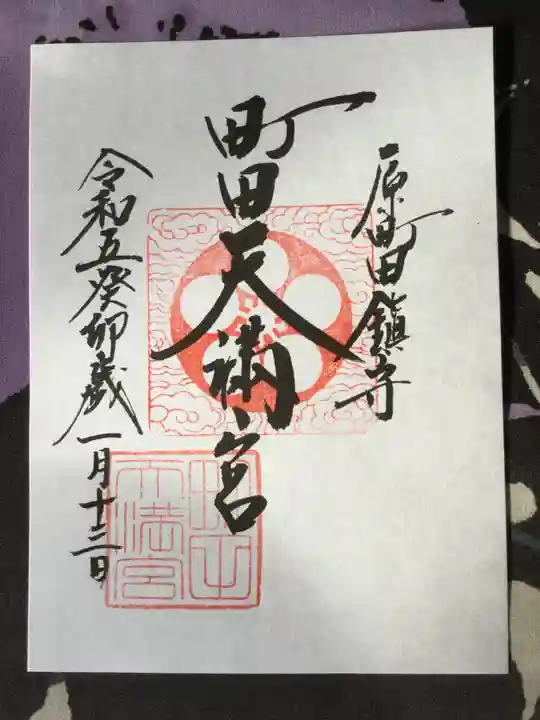 原町田鎮守
町田天満宮
令和五癸卯歳一月十三日
町田
天満宮